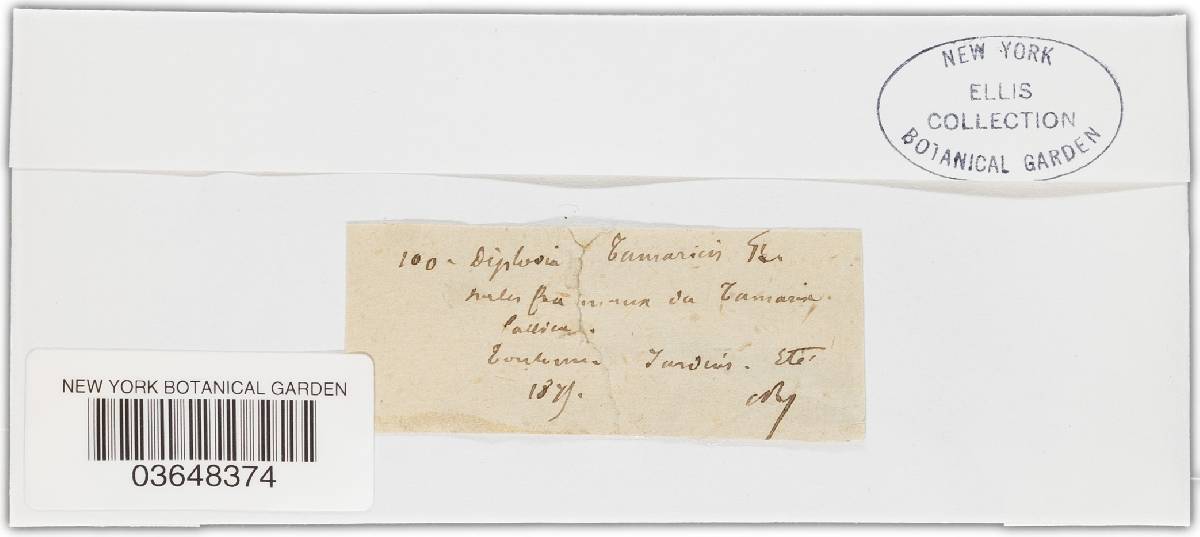 NEW YORK
ELLIS
COLLECTION
BOTANICAL GARDEN
100 - Diplodia Tamaricis
rameaux du Tamarix
Gallica.
Toulouse Jardins. Eté
187
NEW YORK BOTANICAL GARDEN
03648374